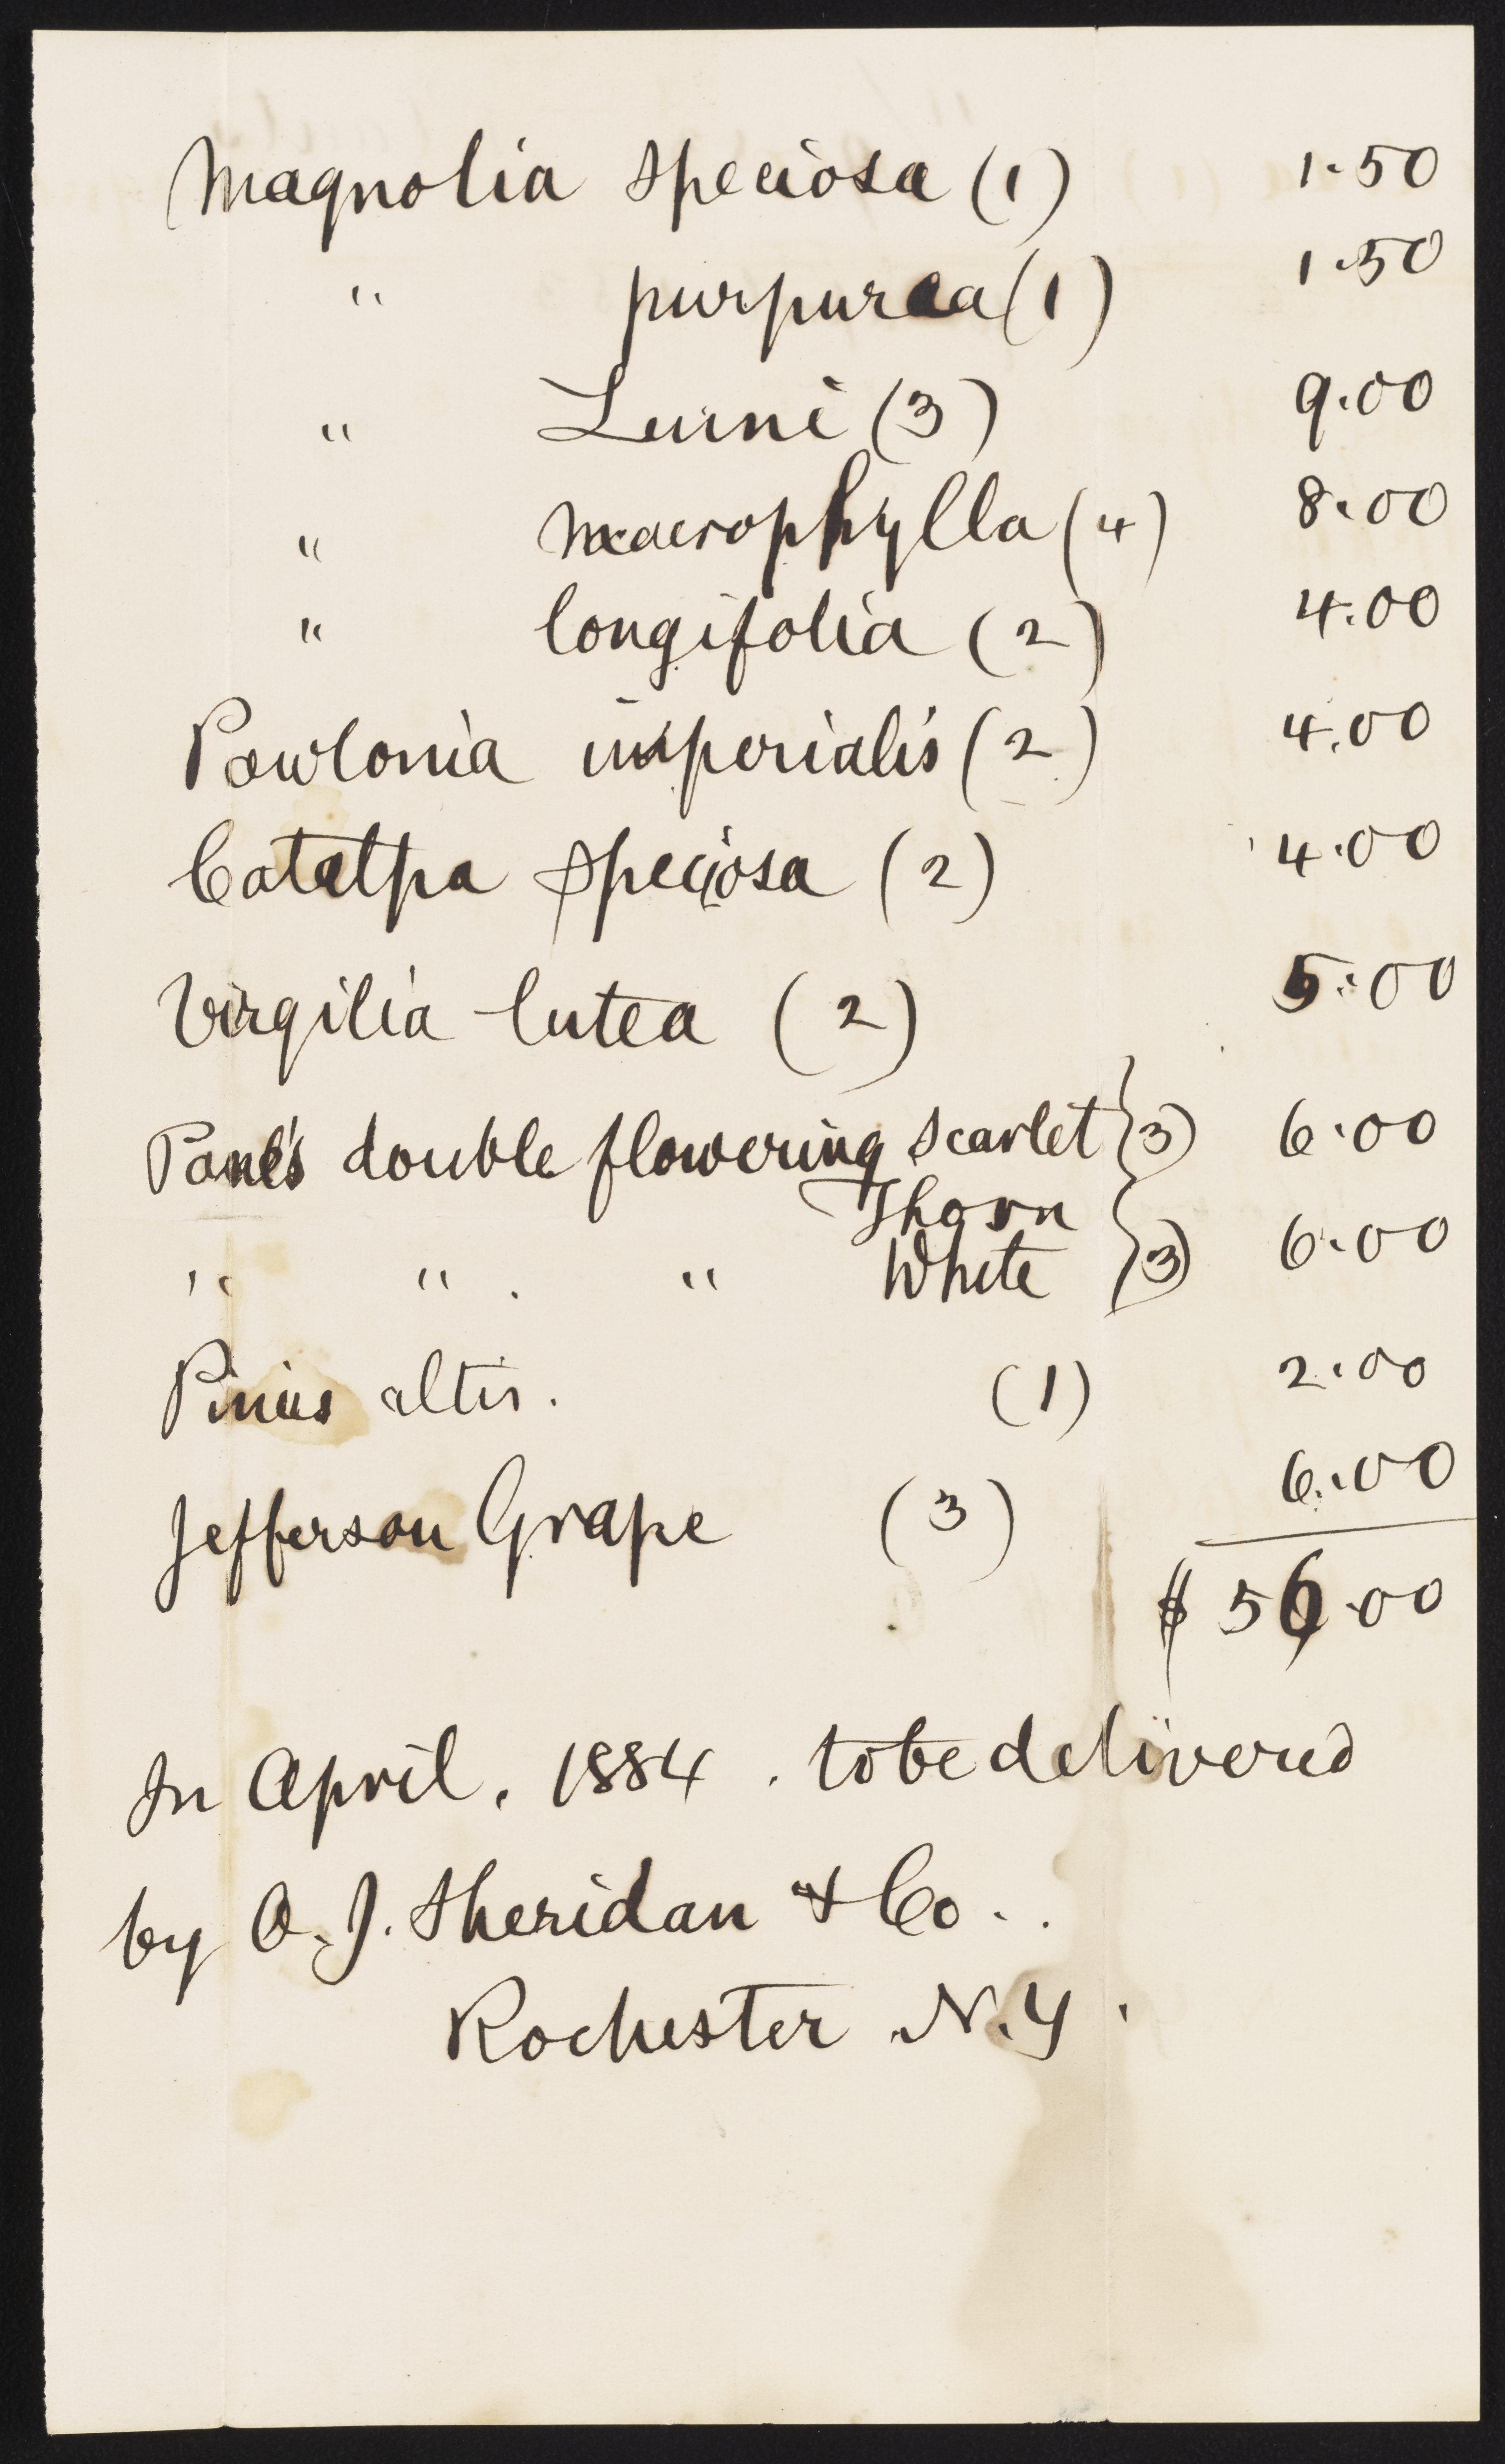 Magnolia speciosa (1) 1.50
" purpurea (1) 1.50
" Leinni (3) 9.00
" macrophylla (4) 8.00
" longifolia (2) 4.00
Pawlonia imperialis (2) 4.00
Catalpa speciosa (2) 4.00
Virgilia lutea (2) 5.00
Paul's double flowering scarlet } (3) 6.00
Thorn
" " " White } (3) 6.00
Pinus (1) 2.00
Jefferson Grape (3) 6.00
$ 56.00
In April, 1884. to be delivered
by O. J. Sheridan & Co..
Rochester N.Y.